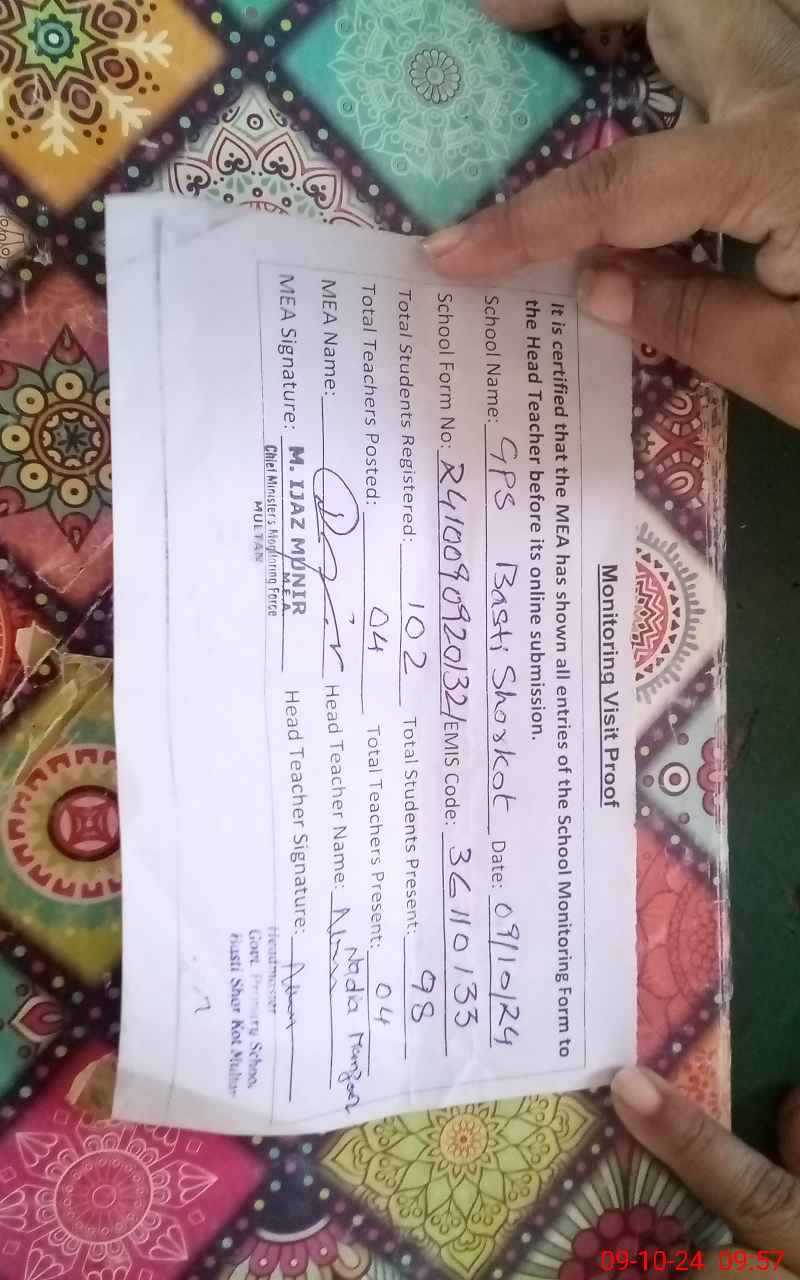 Monitoring Visit Proof
It is certified that the MEA has shown all entries of the School Monitoring Form to
the Head Teacher before its online submission.
School Name: GPS Basti Shorkot Date: 09/10/24
School Form No: R410090920132/EMIS Code: 36110133
Total Students Registered: 102 Total Students Present: 98
Total Teachers Posted: 04 Total Teachers Present: 04
MEA Name: Head Teacher Name: Nadia
MEA Signature: M. IJAZ MUNIR Head Teacher Signature:
M.E.A
Chief Minister's Monitoring Force
MULTAN
Headmaster
Govt. Primary School
Basti Shor Kot Multan
09-10-24 09:57